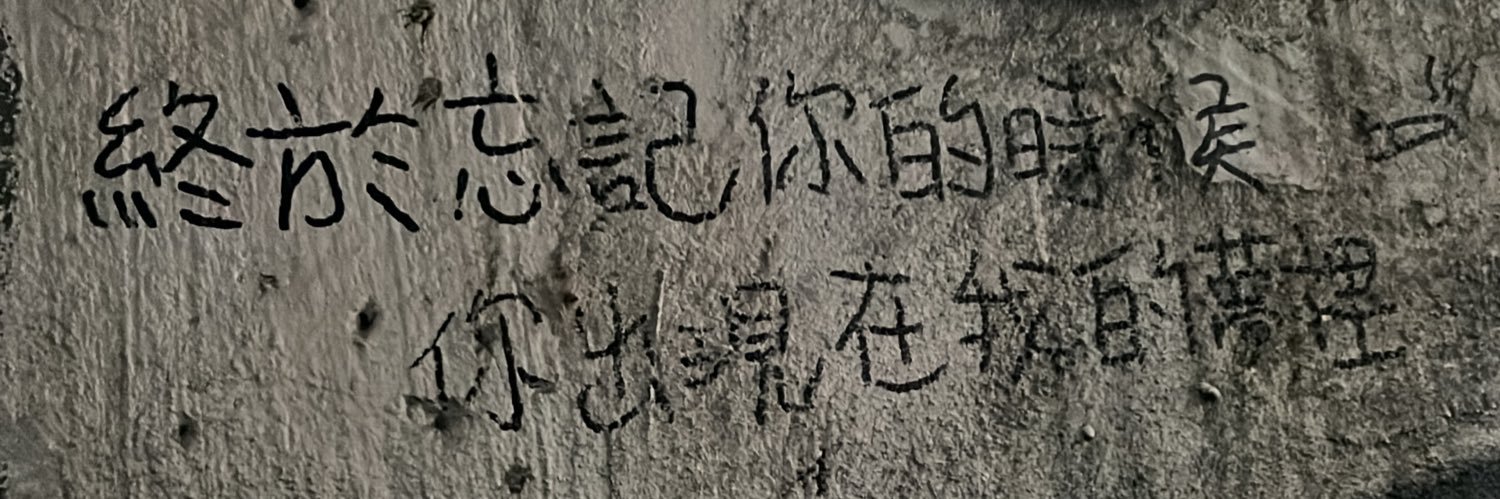 終於忘記你的時候
你出現在我的夢裡